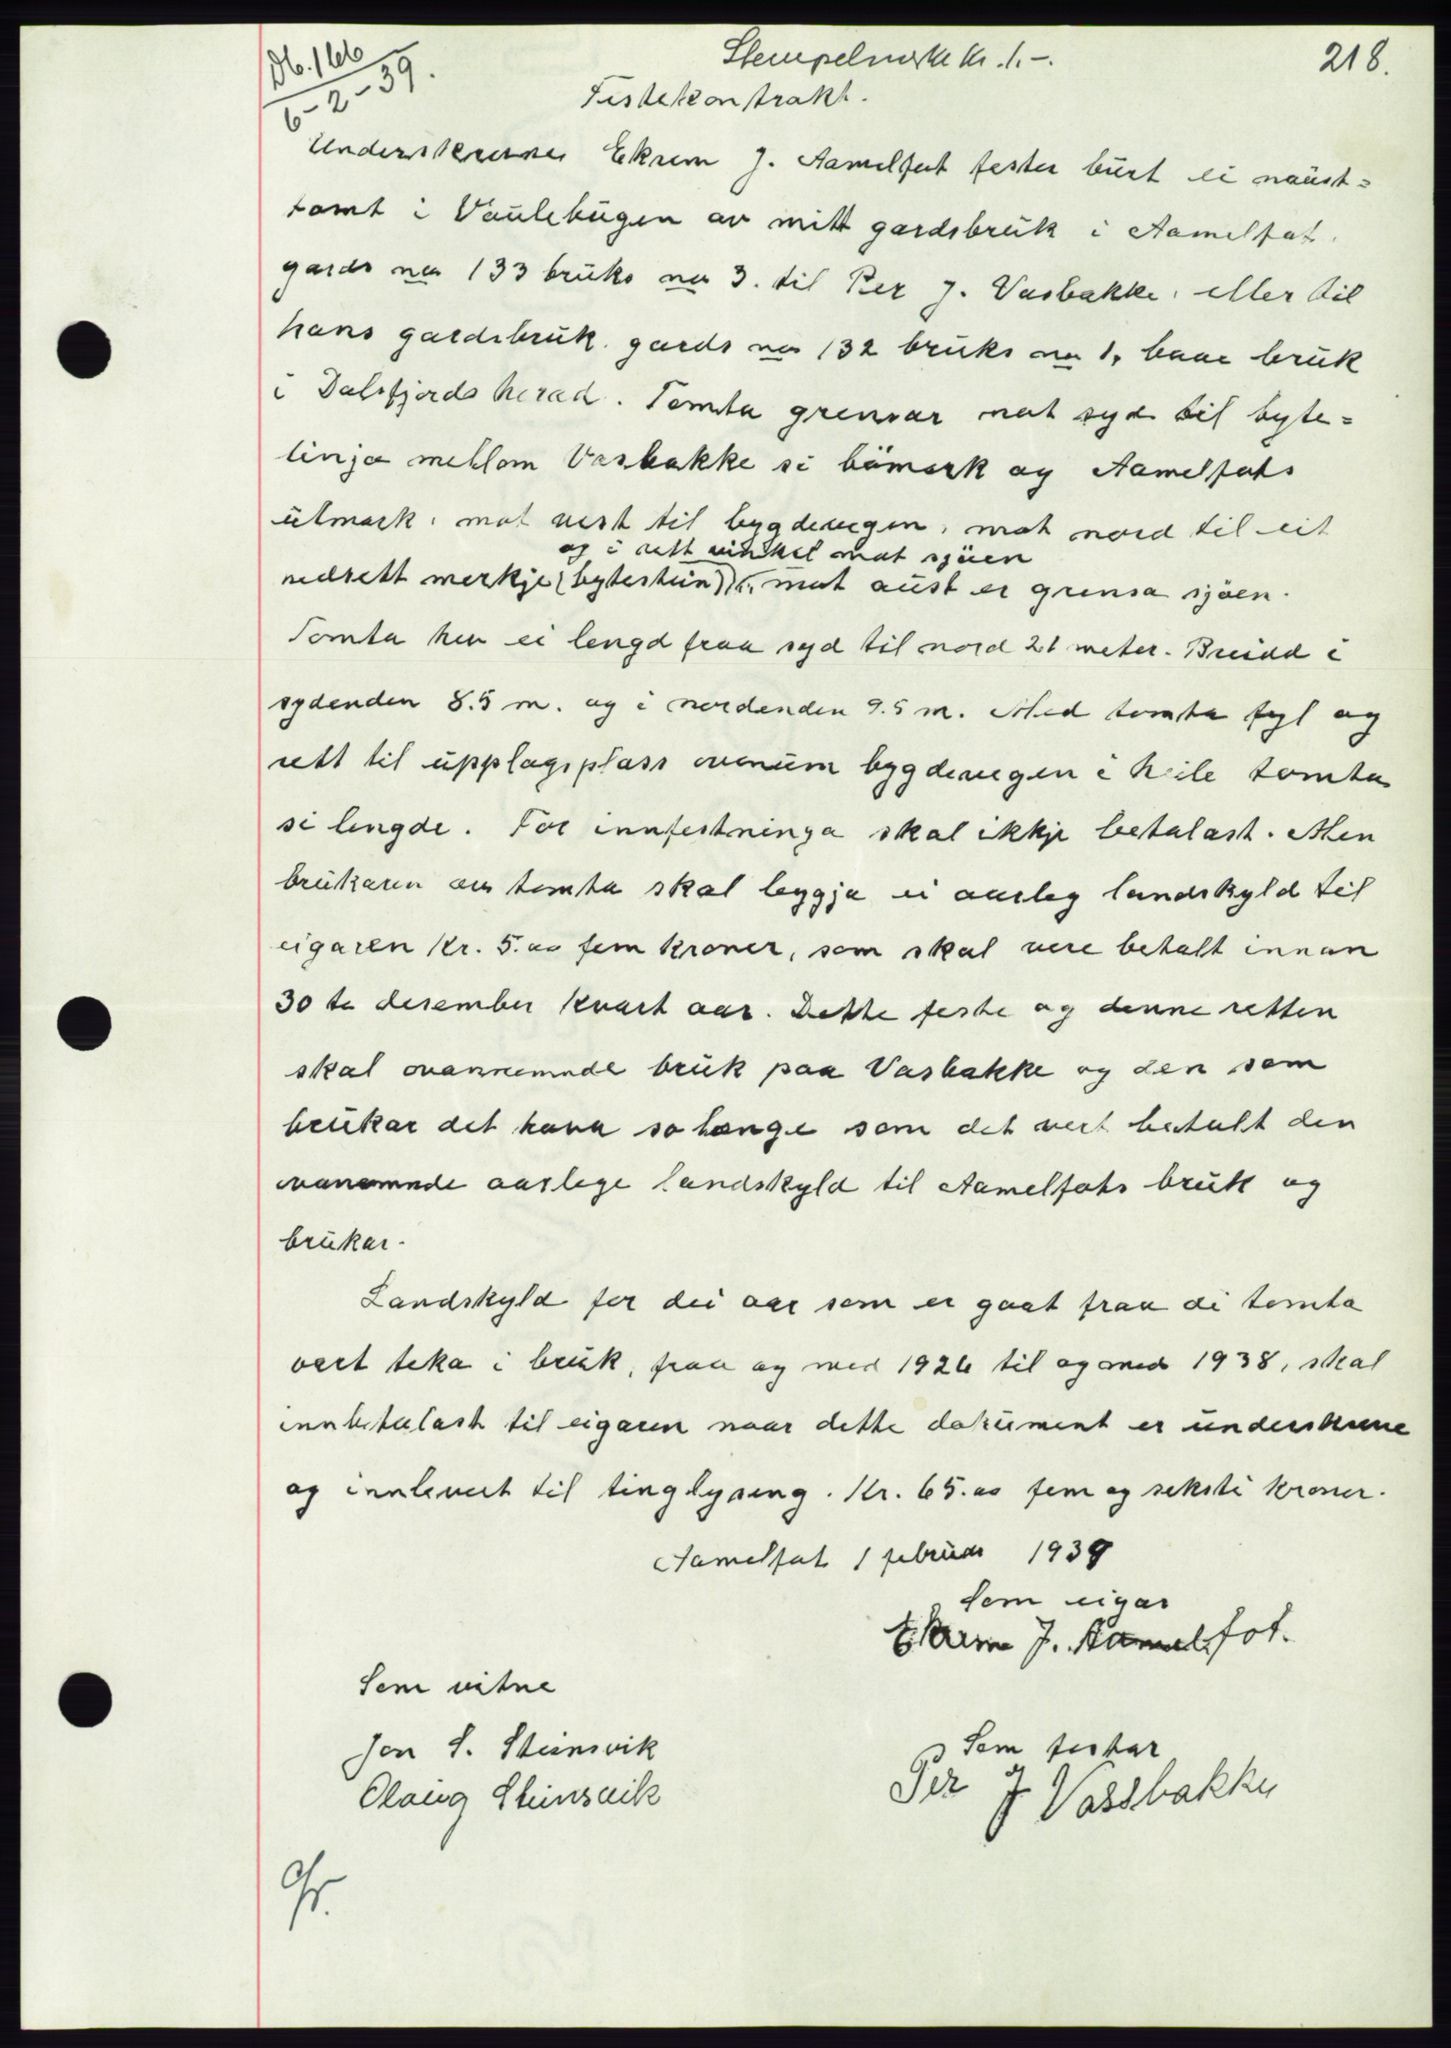 Db. 166
6-2-39.
Stempelmerke kr. 1.-.
218.
Festekontrakt.
Underskrevne Ekrem J. Aamelfot fester burt ei naust=
tomt i Vaulebugen av mitt gardsbruk i Aamelfot.
gards no 133 bruks no 3. til Per J. Vasbakke, eller til
hans gardsbruk. gards no 132 bruks no 1, baae bruk
i Dalsfjords herad. Tomta grensar mot syd til byte=
linja mellom Vasbakke si bömark og Aamelfots
utmark, mot vest til bygdevegen, mot nord til eit
og i rett vinkel mot sjöen
nedsett merkje (bytestein), mot aust er grensa sjöen.
Tomta hev ei lengd fraa syd til nord 21 meter. Breidd i
sydenden 8.5 m. og i nordenden 9.5 m. Med tomta fyl og
rett til upplagsplass ovenum bygdevegen i heile tomta
si lengde. For innfestninga skal ikkje betalast. Men
brukaren av tomta skal leggja ei aarleg landskyld til
eigaren Kr. 5.oo fem kroner, som skal vere betalt innan
30 te desember kvart aar. Dette feste og denne retten
skal ovannemnde bruk paa Vasbakke og den som
brukar det hava so lenge som det vert betalt den
ovanemnde aarlege landskyld til Aamelfots bruk og
brukar.
Landskyld for dei aar som er gaat fraa di tomta
vart teka i bruk, fraa og med 1926 til og med 1938, skal
innbetalast til eigaren naar dette dokument er underskreve
og innlevert til tinglysing. Kr. 65.oo fem og seksti kroner.
Aamelfot 1 februar 1939
Som eigar
Ekrem J. Aamelfot.
Som vitne
Jon S. Steinsvik
Olaug Steinsvik
Som festar
Per J Vassbakke